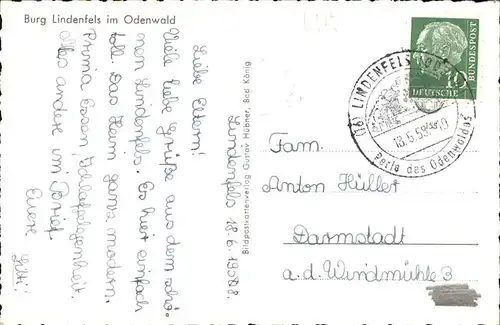 Burg Lindenfels im Odenwald
Lindenfels 18.6.1958.
Liebe Eltern!
Viele liebe Grüße aus dem schö-
nen Lindenfels. Es hier einfach
toll. Das Heim ganz modern.
Prima Essen, Schlafgelegenheit.
Alles andere im Brief.
Eure
Bildpostkartenverlag Gustav Hübner, Bad König
(16) LINDENFELS
18.6.58
Perle des Odenwaldes
10
DEUTSCHE
BUNDESPOST
Fam.
Anton Hüller
Darmstadt
a.d. Windmühle 3